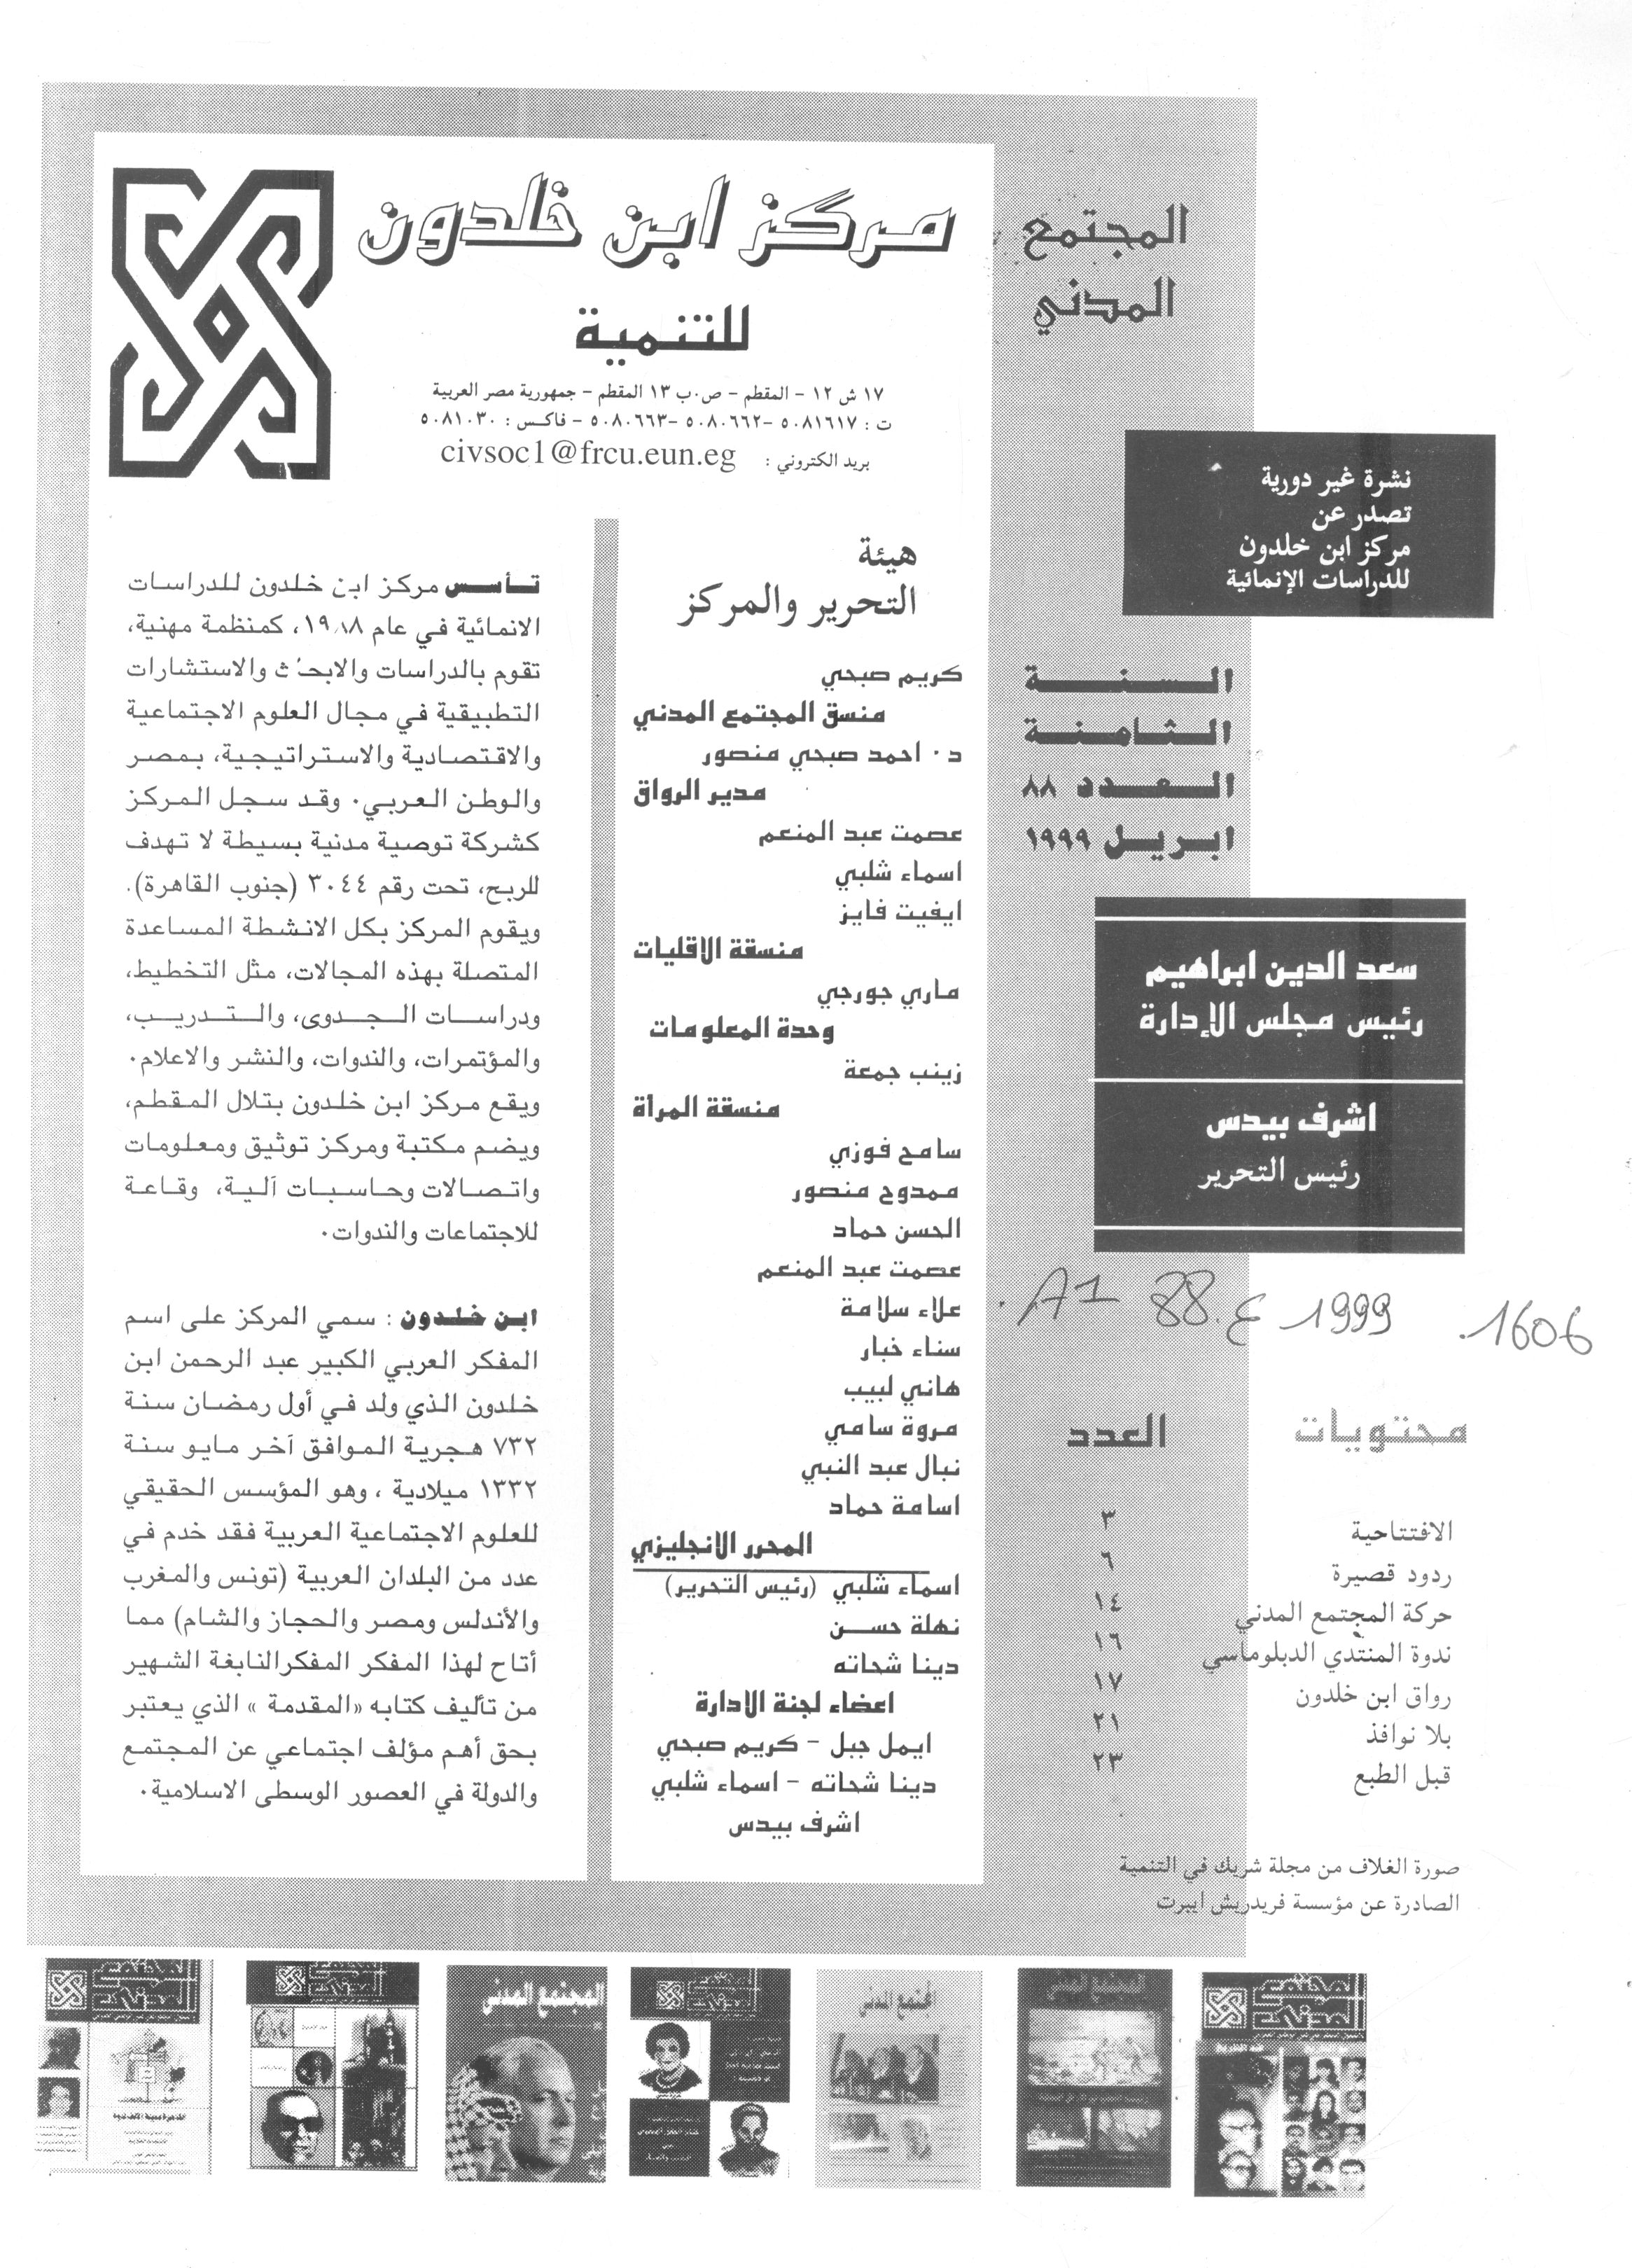 المجتمع
المدني
مركز ابن خلدون
للتنمية
١٧ ش ١٢ - المقطم - ص.ب ١٣ المقطم - جمهورية مصر العربية
ت : ٥٠٨١٦١٧ -٥٠٨٠٦٦٢ -٥٠٨٠٦٦٣ - فاكس : ٥٠٨١٠٣٠
بريد الكتروني : civsoc1@frcu.eun.eg
نشرة غير دورية
تصدر عن
مركز ابن خلدون
للدراسات الإنمائية
السنة
الثامنة
العدد ٨٨
ابريل ١٩٩٩
سعد الدين ابراهيم
رئيس مجلس الإدارة
اشرف بيدس
رئيس التحرير
.A1 88.ع 1999 .1606
محتويات العدد
الافتتاحية ٣
ردود قصيرة ٦
حركة المجتمع المدني ١٤
ندوة المنتدي الدبلوماسي ١٦
رواق ابن خلدون ١٧
بلا نوافذ ٢١
قبل الطبع ٢٣
صورة الغلاف من مجلة شريك في التنمية
الصادرة عن مؤسسة فريدريش ايبرت
هيئة
التحرير والمركز
كريم صبحي
منسق المجتمع المدني
د. احمد صبحي منصور
مدير الرواق
عصمت عبد المنعم
اسماء شلبي
ايفيت فايز
منسقة الاقليات
ماري جورجي
وحدة المعلومات
زينب جمعة
منسقة المرأة
سامح فوزي
ممدوح منصور
الحسن حماد
عصمت عبد المنعم
علاء سلامة
سناء خبار
هاني لبيب
مروة سامي
نبال عبد النبي
اسامة حماد
المحرر الانجليزي
اسماء شلبي (رئيس التحرير)
نهلة حسن
دينا شحاته
اعضاء لجنة الادارة
ايمل جبل - كريم صبحي
دينا شحاته - اسماء شلبي
اشرف بيدس
تأسس مركز ابن خلدون للدراسات
الانمائية في عام ١٩٨٨، كمنظمة مهنية،
تقوم بالدراسات والابحاث والاستشارات
التطبيقية في مجال العلوم الاجتماعية
والاقتصادية والاستراتيجية، بمصر
والوطن العربي. وقد سجل المركز
كشركة توصية مدنية بسيطة لا تهدف
للربح، تحت رقم ٣٠٤٤ (جنوب القاهرة).
ويقوم المركز بكل الانشطة المساعدة
المتصلة بهذه المجالات، مثل التخطيط،
ودراسات الجدوى، والتدريب،
والمؤتمرات، والندوات، والنشر والاعلام.
ويقع مركز ابن خلدون بتلال المقطم،
ويضم مكتبة ومركز توثيق ومعلومات
واتصالات وحاسبات آلية، وقاعة
للاجتماعات والندوات.
ابن خلدون : سمي المركز على اسم
المفكر العربي الكبير عبد الرحمن ابن
خلدون الذي ولد في أول رمضان سنة
٧٣٢ هجرية الموافق آخر مايو سنة
١٣٣٢ ميلادية ، وهو المؤسس الحقيقي
للعلوم الاجتماعية العربية فقد خدم في
عدد من البلدان العربية (تونس والمغرب
والأندلس ومصر والحجاز والشام) مما
أتاح لهذا المفكر المفكرالنابغة الشهير
من تأليف كتابه «المقدمة » الذي يعتبر
بحق أهم مؤلف اجتماعي عن المجتمع
والدولة في العصور الوسطى الاسلامية.
المجتمع المدني
المجتمع المدني
المجتمع المدني
المجتمع المدني
المجتمع المدني
المجتمع المدني
المجتمع المدني